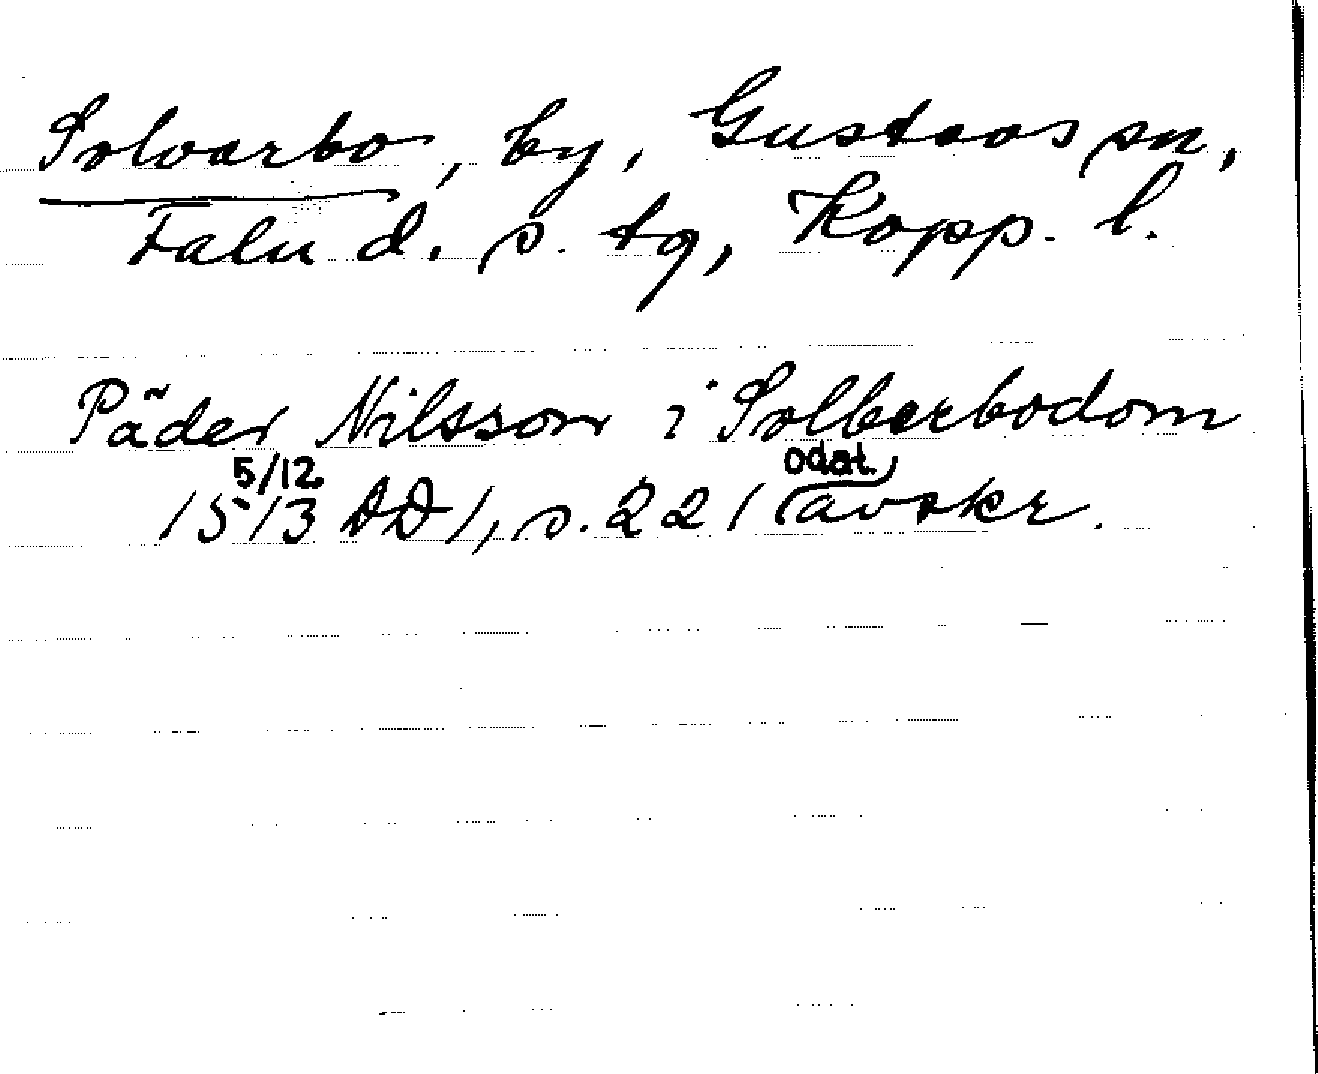 Solvarbo, by, Gustavs sn,
Falu d. s. tg, Kopp. l.
Päder Nilsson i Solberbodom
5/12 odat.
1513 DD 1, s. 221 (avskr.